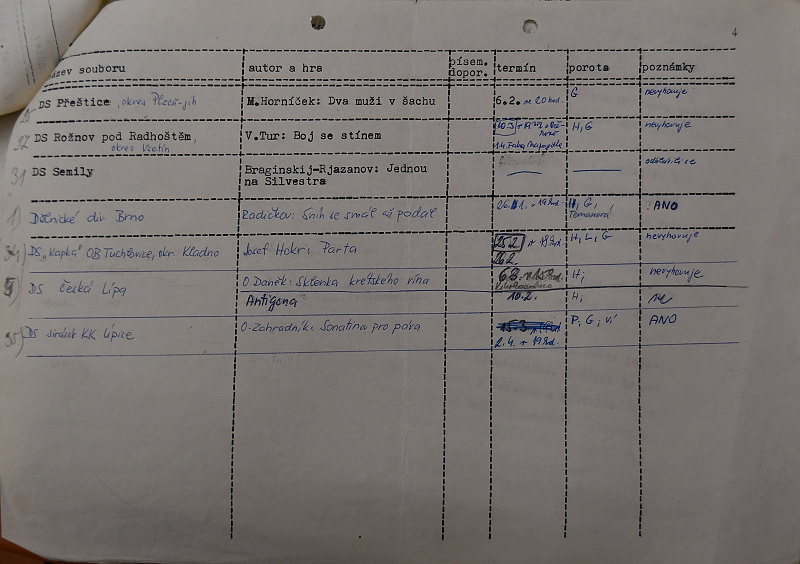 4
název souboru autor a hra písem. dopor. termín porota poznámky
DS Přeštice, okres Plzeň-jih M.Horníček: Dva muži v šachu 6.2. v 20 hod. G nevyhovuje
32 DS Rožnov pod Radhoštěm, V.Tur: Boj se stínem 10.3. H,G nevyhovuje
okres Vsetín
31 DS Semily Braginskij-Rjazanov: Jednou
na Silvestra
1) Dělnické div. Brno Radičkov: Sníh se smál až padal 26. v 19 hod. H, G, ANO
Tomanová
34) DS "Kapka" OB Tuchlovice, okr. Kladno Josef Hokr: Parta 25.2. v 19 hod. H, L, G nevyhovuje
26.2.
DS Česká Lípa O. Daněk: Sklenka krétského vína 6.3. H, nevyhovuje
Antigona 10.2. H, ne
35) DS Jirásek KK Úpice O. Zahradník: Sonatina pro páva 15.3. P, G, Ví ANO
2.4. v 19 hod.